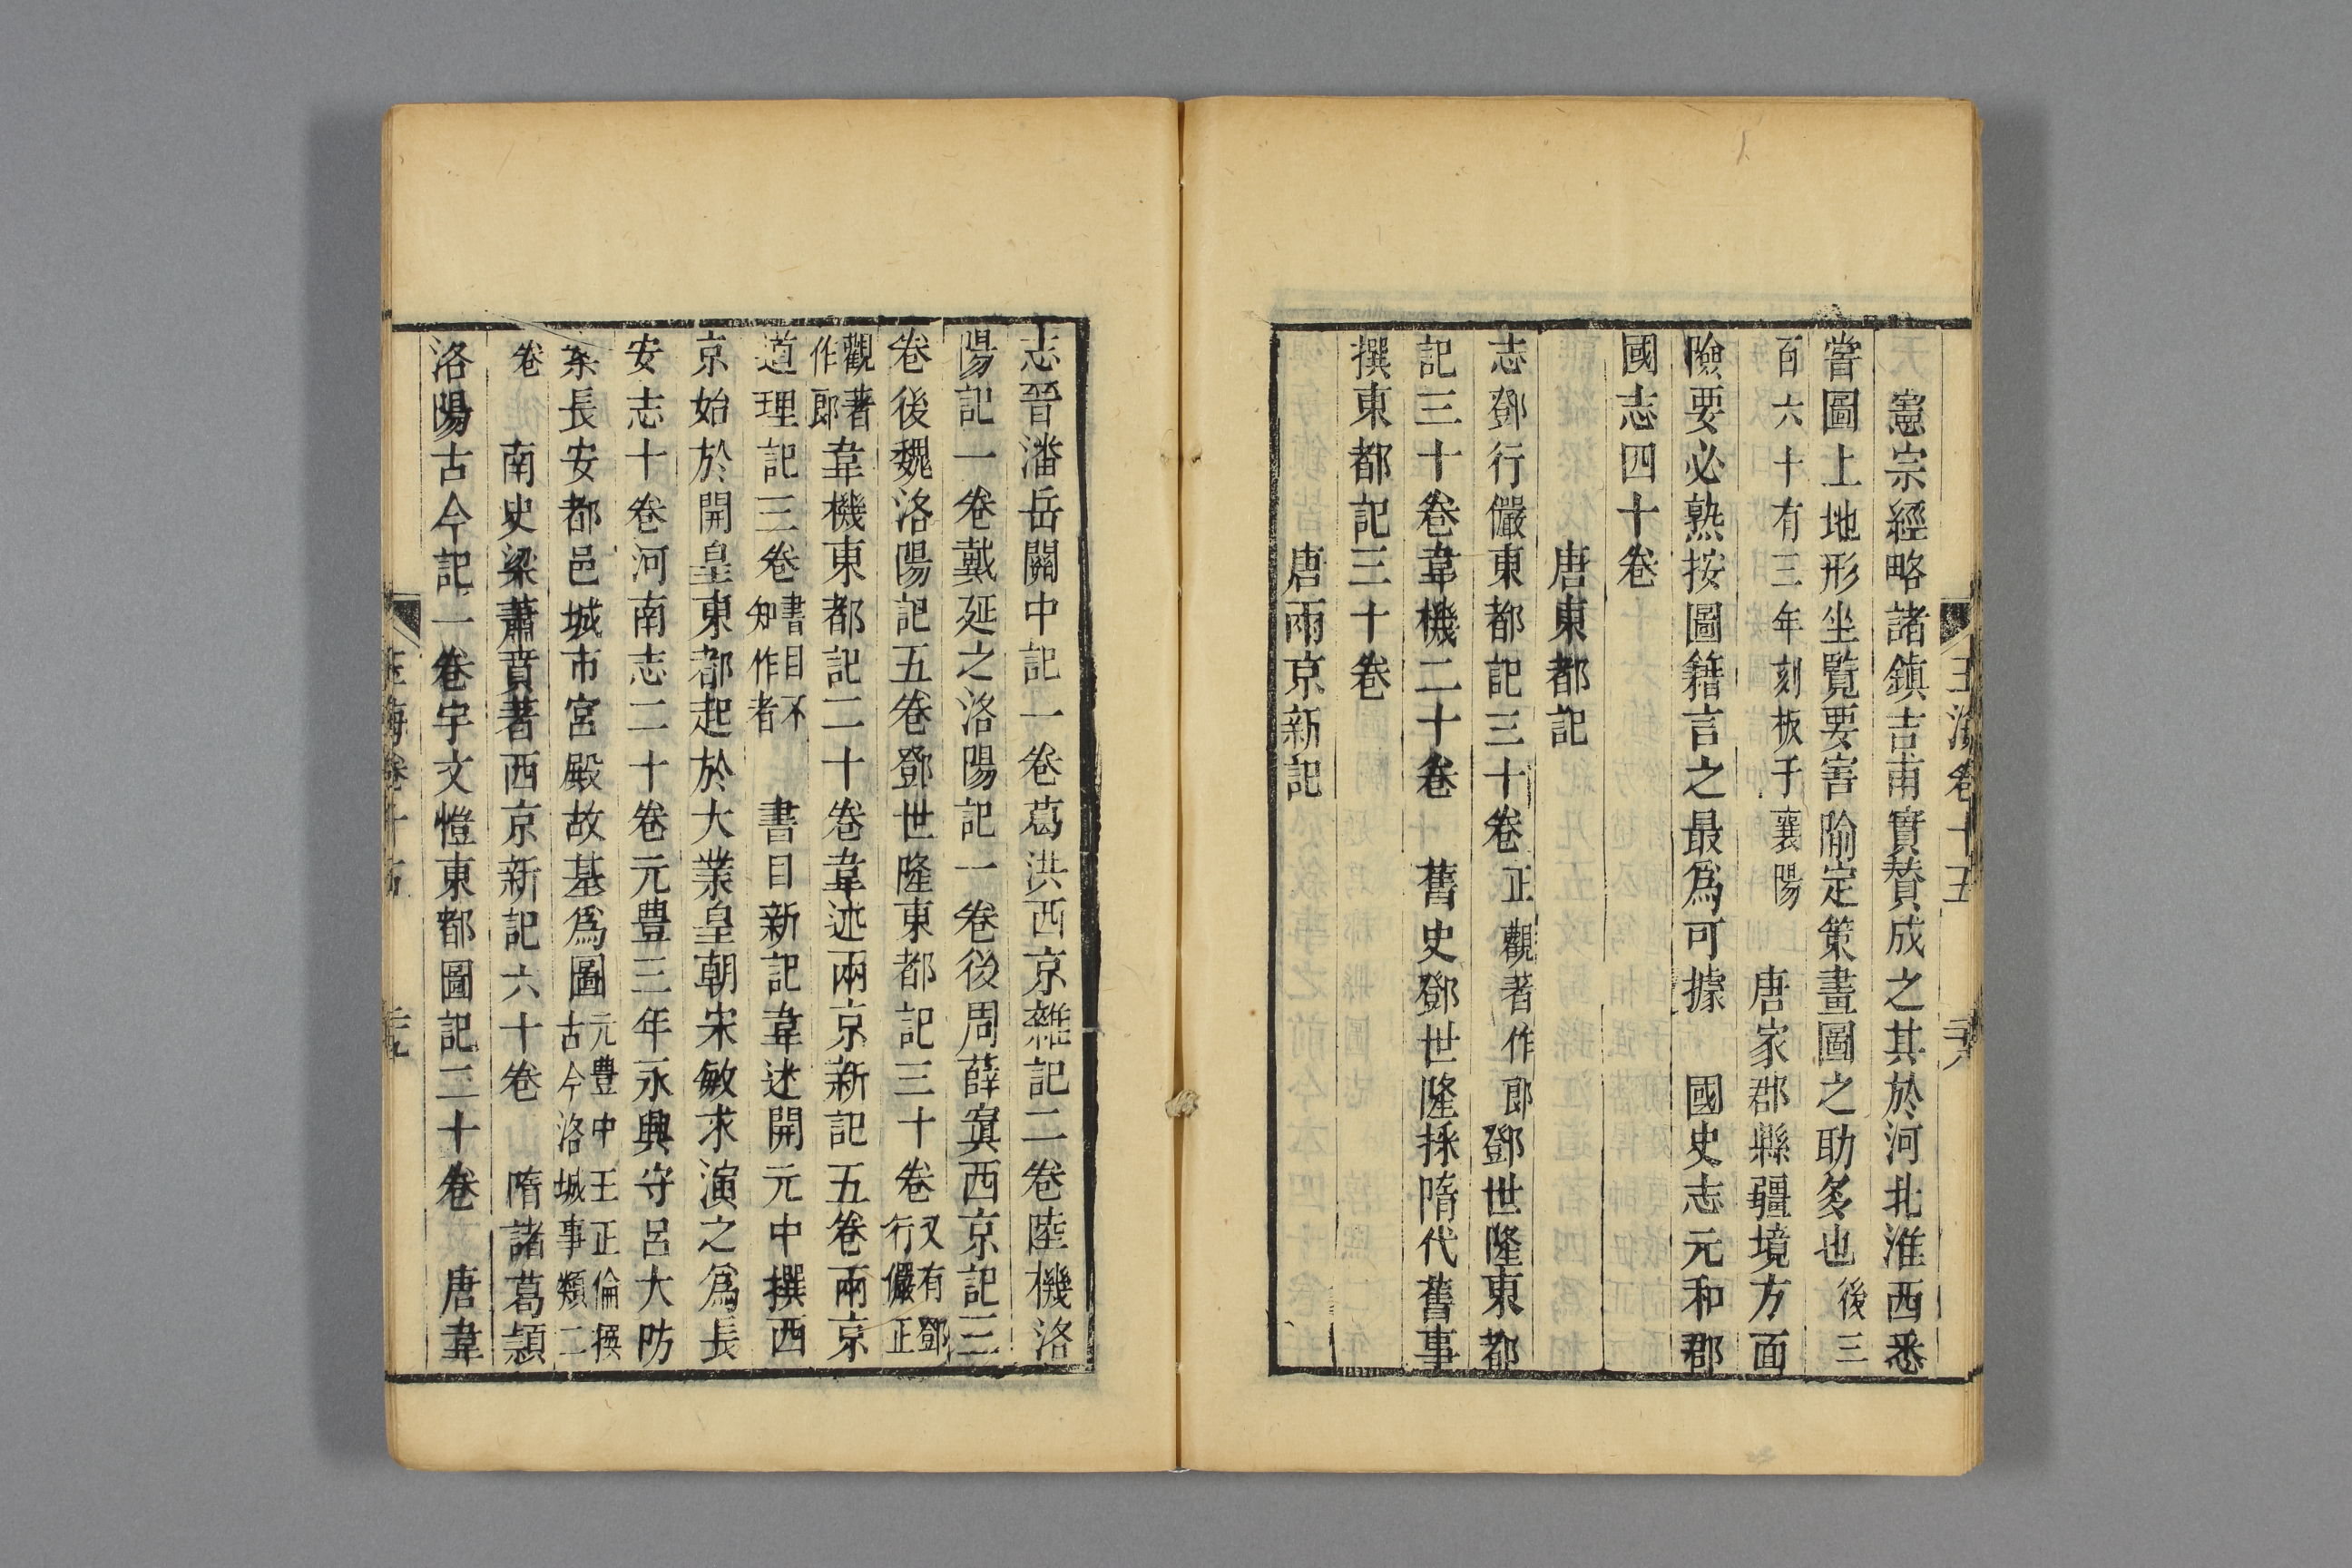 玉海卷十五
憲宗經略諸鎮吉甫實賛成之其於河北淮西悉
嘗圖上地形坐覽要害隃定策畫圖之助多也後三
百六十有三年刻板于襄陽 唐家郡縣疆境方面
險要必熟按圖籍言之最爲可據 國史志元和郡
國志四十卷
唐東都記
志鄧行儼東都記三十卷正觀著作郎鄧世隆東都
記三十卷韋機二十卷 舊史鄧世隆採隋代舊事
撰東都記三十卷
唐兩京新記
志晉潘岳關中記一卷葛洪西京雜記二卷陸機洛
陽記一卷戴延之洛陽記一卷後周薛寘西京記三
卷後魏洛陽記五卷鄧世隆東都記三十卷又有鄧行儼正
觀著作郎韋機東都記二十卷韋述兩京新記五卷兩京
道理記三卷書目不知作者 書目新記韋述開元中撰西
京始於開皇東都起於大業皇朝宋敏求演之爲長
安志十卷河南志二十卷元豊三年永興守呂大防
桼長安都邑城市宮殿故基爲圖元豊中王正倫撰古今洛城事類二
卷 南史梁蕭賁著西京新記六十卷 隋諸葛潁
洛陽古今記一卷宇文愷東都圖記二十卷 唐韋